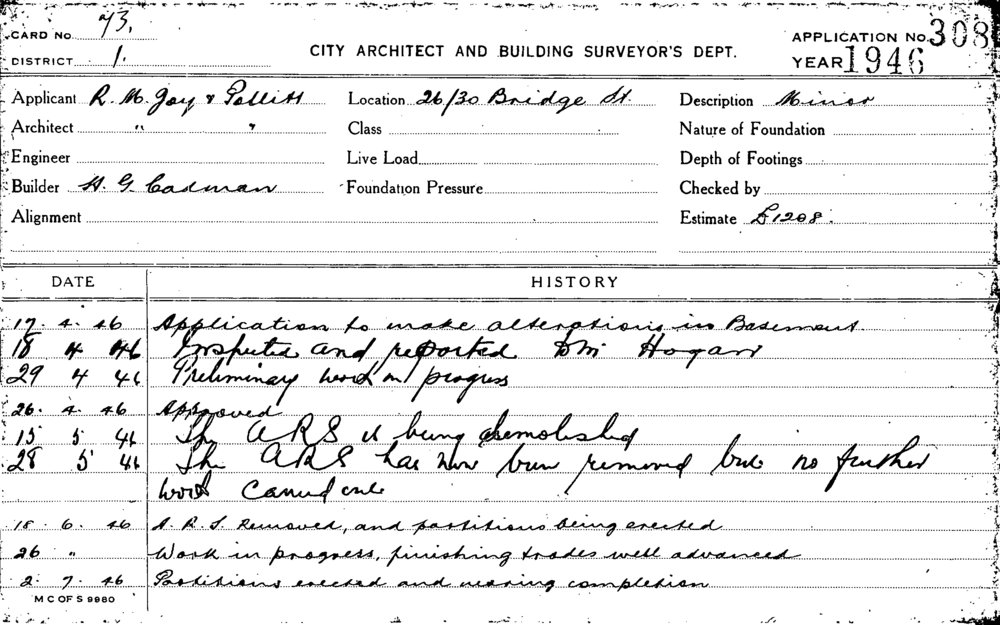 CARD No. 73.
APPLICATION No. 308
DISTRICT 1.
CITY ARCHITECT AND BUILDING SURVEYOR'S DEPT.
YEAR 1946
Applicant R. M. Gay & Pollitt Location 26/30 Bridge St. Description Minor
Architect " " Class Nature of Foundation
Engineer Live Load Depth of Footings
Builder H. G. Cadman Foundation Pressure Checked by
Alignment Estimate £1208.
DATE HISTORY
17. 4. 46 Application to make alterations in Basement.
18 4 46 Inspected and reported to Mr Hogan
29 4 46 Preliminary work in progress
26. 4. 46 Approved
15 5 46 The ARS is being demolished
28 5 46 The ARS has now been removed but no further
work carried out
18. 6. 46 A.R.S. Removed, and partitions being erected
26 " Work in progress, finishing trades well advanced
2. 7. 46 Partitions erected and nearing completion
M C OF S 9980